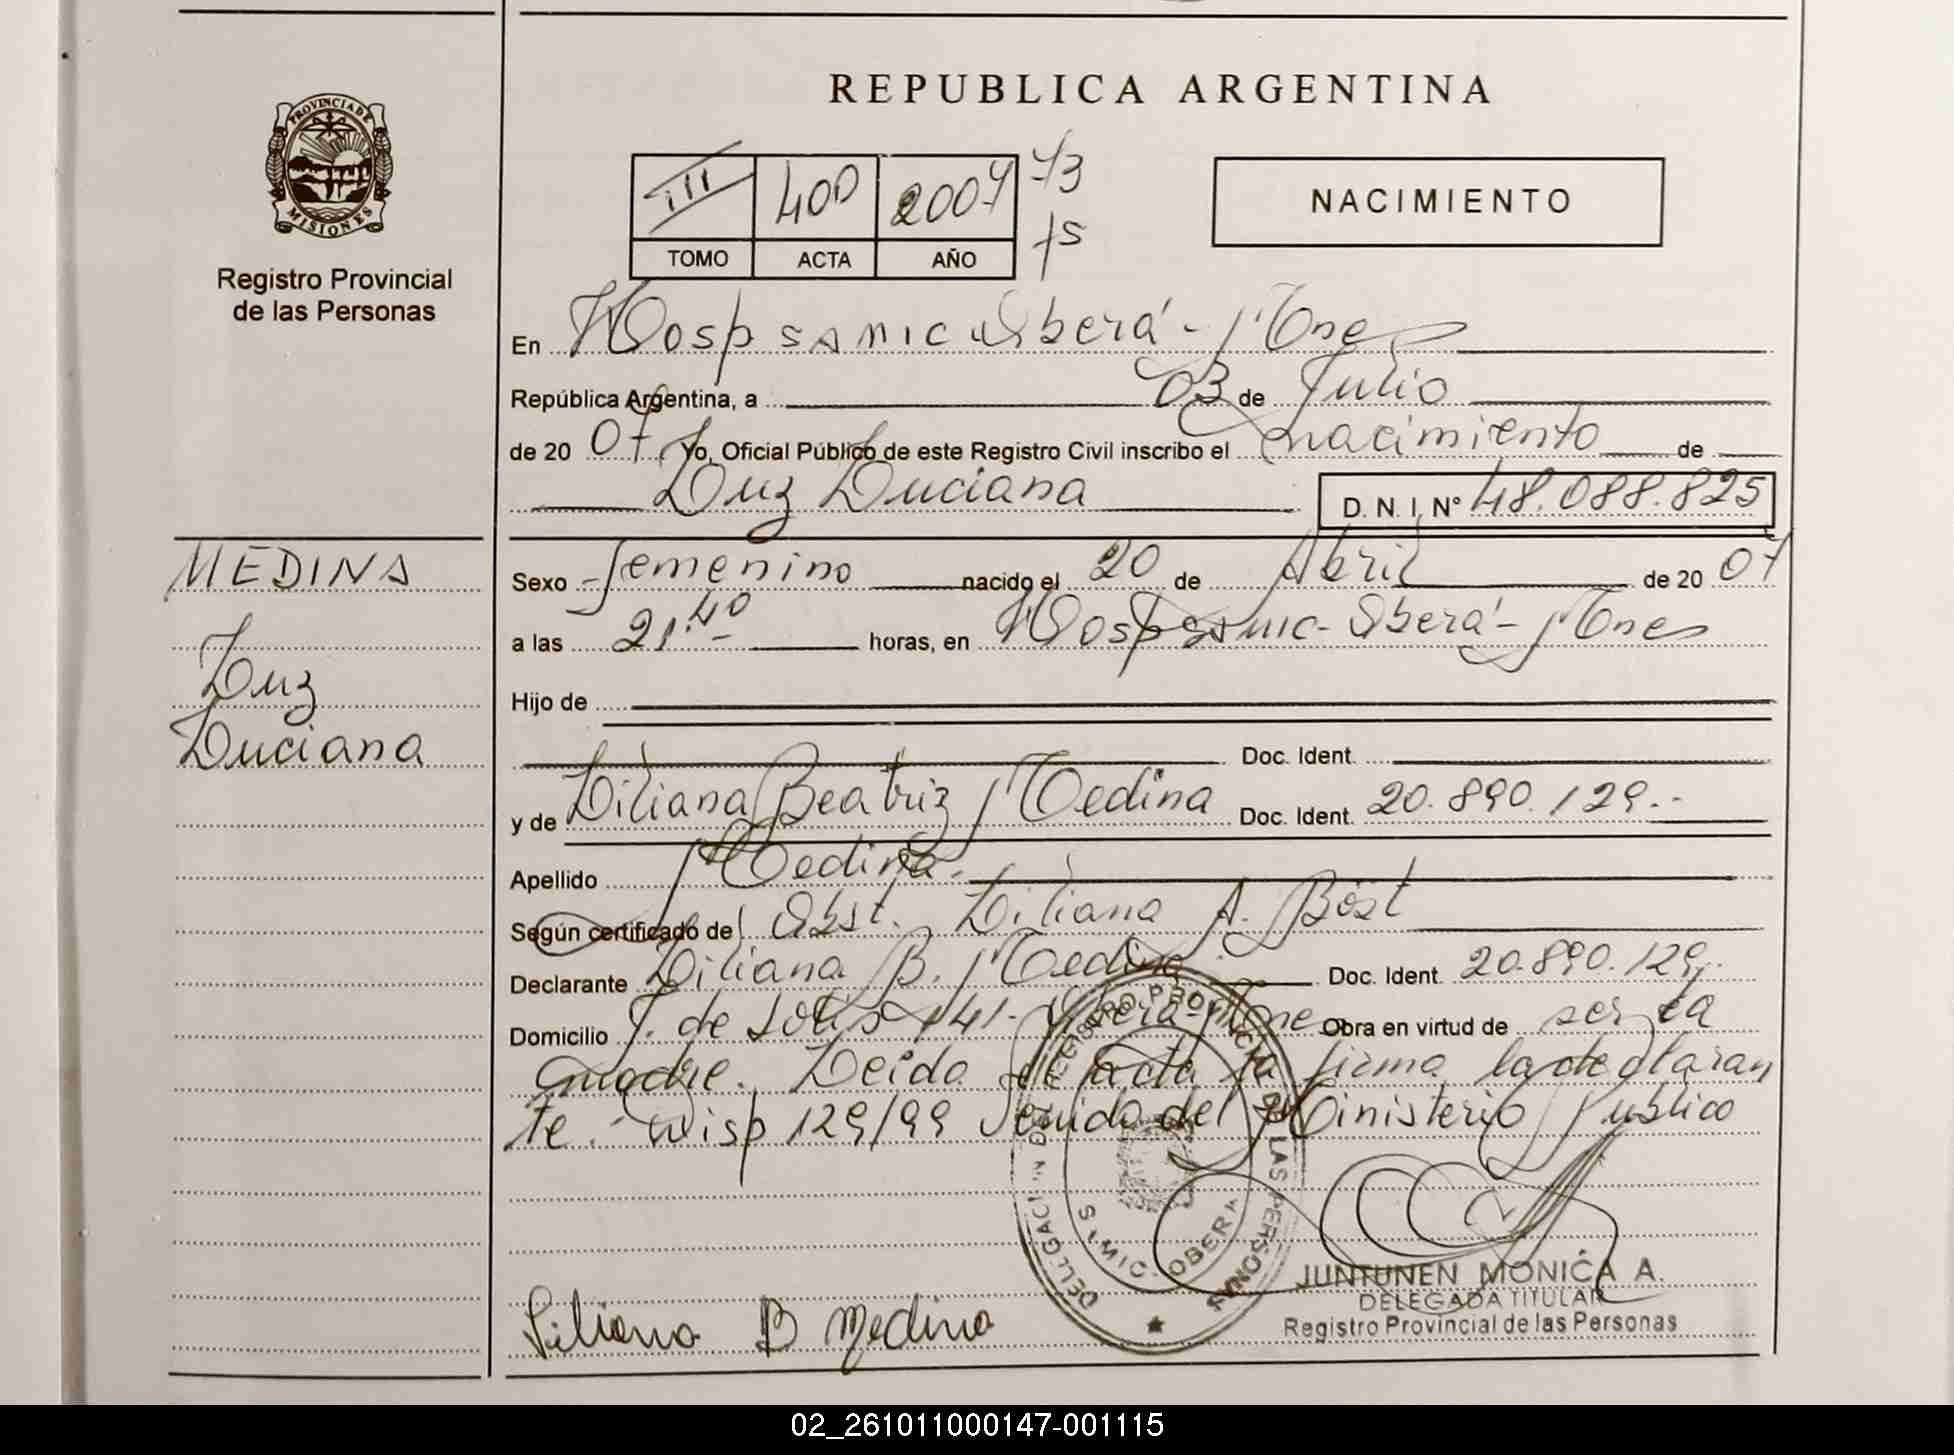 PROVINCIA DE
MISIONES
Registro Provincial
de las Personas
MEDINA
Luz
Luciana
REPUBLICA ARGENTINA
III 400 2007 73
75
TOMO ACTA AÑO
NACIMIENTO
En Hosp SAMIC Oberá - Mnes
República Argentina, a 03 de Julio
de 20 07 Yo, Oficial Público de este Registro Civil inscribo el nacimiento de
Luz Luciana D. N. I. N° 48.088.825
Sexo femenino nacido el 20 de Abril de 20 07
a las 21:40 horas, en Hosp SAMIC - Oberá - Mnes
Hijo de
Doc. Ident.
y de Liliana Beatriz Medina Doc. Ident. 20.890.129.-
Apellido Medina.
Según certificado de Obst. Liliana A. Böst
Declarante Liliana B. Medina Doc. Ident. 20.890.129.
Domicilio J. de Solís 141 - Oberá - Mnes Obra en virtud de ser la
madre. Leida el acta la firma la declaran
te.- Disp 129/99 Ministerio Público
REGISTRO PROVINCIAL DE LAS PERSONAS
OBERA
Liliana B Medina
JUNTUNEN MONICA A.
DELEGADA TITULAR
Registro Provincial de las Personas
02_261011000147-001115